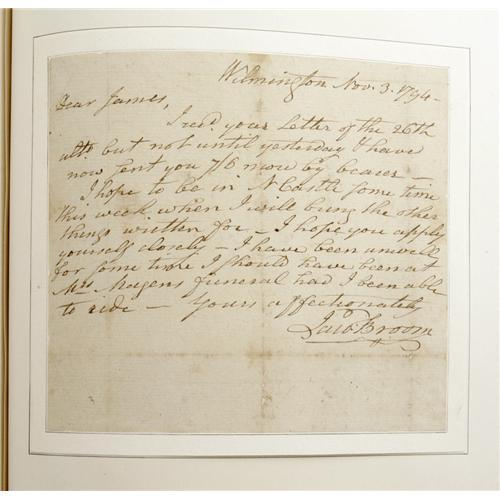 Wilmington Nov. 3. 1794 -
Dear James,
I recd. your Letter of the 26th
ulto. but not until yesterday I have
now sent you 7/6 more by bearer -
I hope to be in N Castle some time
this week when I will bring the other
things written for - I hope you apply
yourself closely - I have been unwell
for some time I should have been at
Mrs. Magens funeral had I been able
to ride - Yours affectionately
Jacob Broom